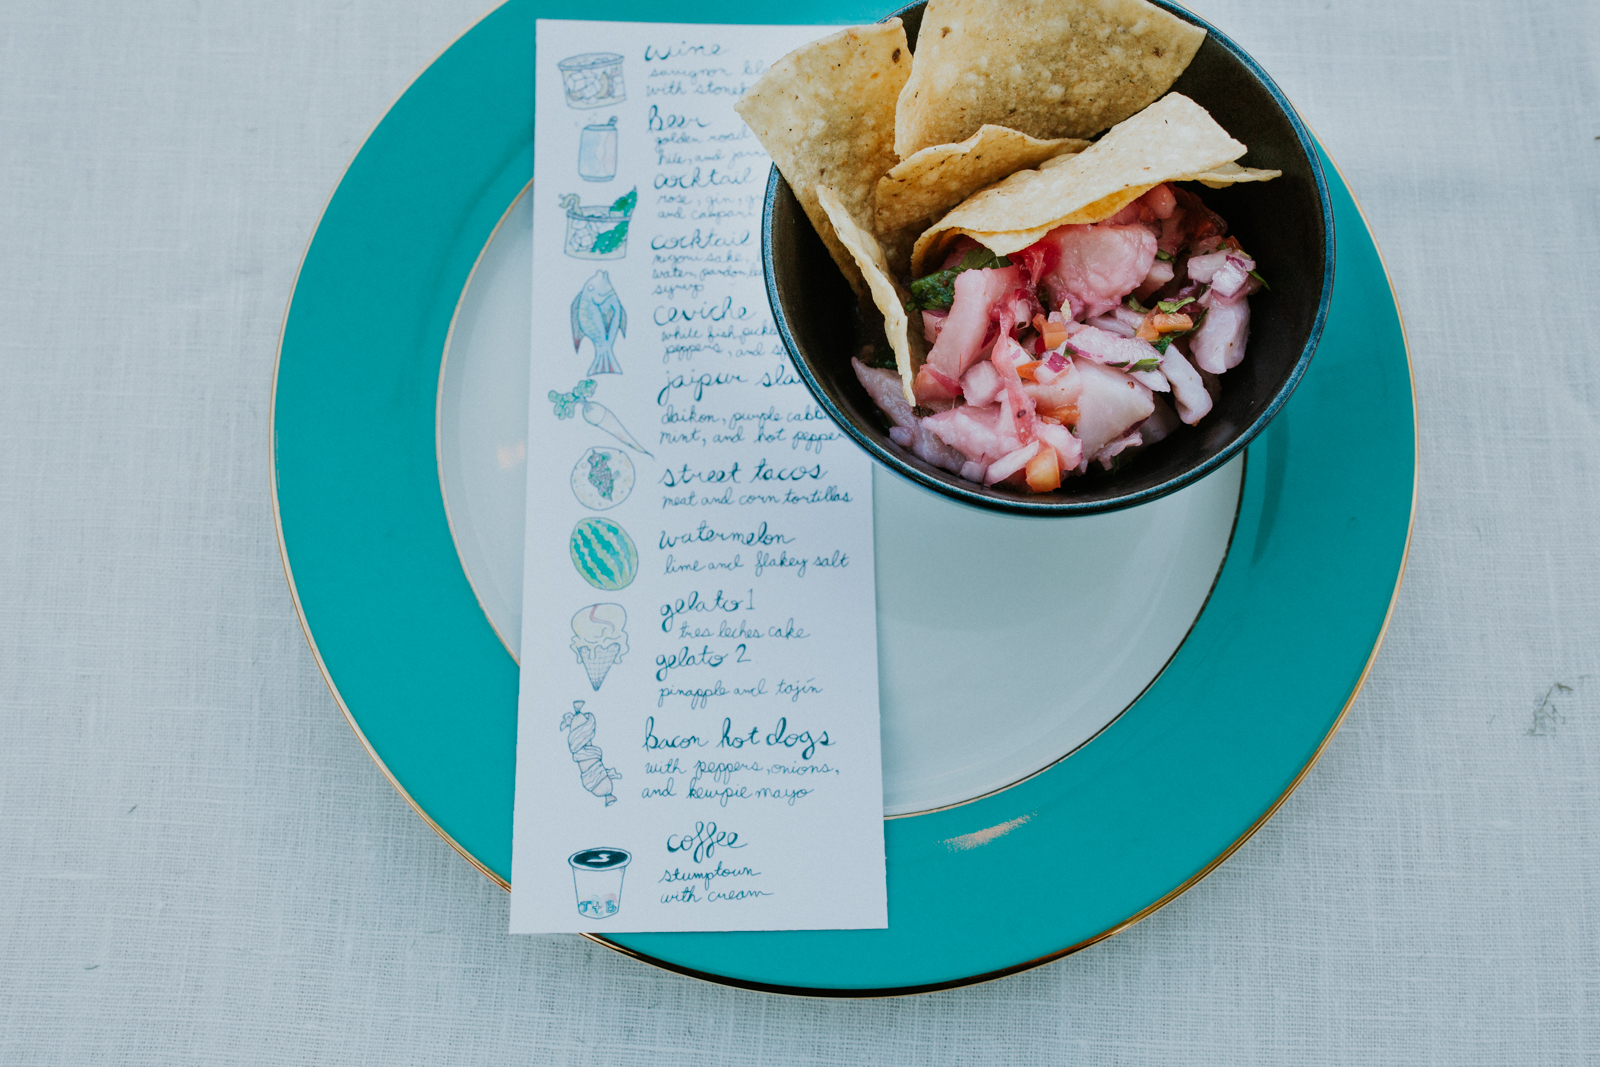 wine
sauvignon
with
Beer
golden road
cocktail
rose, gin,
and campari
cocktail
water,
syrup
ceviche
white fish,
peppers, and
jaipur
daikon, purple
mint, and hot
street tacos
meat and corn tortillas
watermelon
lime and flakey salt
gelato 1
tres leches cake
gelato 2
pinapple and tajín
bacon hot dogs
with peppers, onions,
and kewpie mayo
coffee
stumptown
with cream
J+B